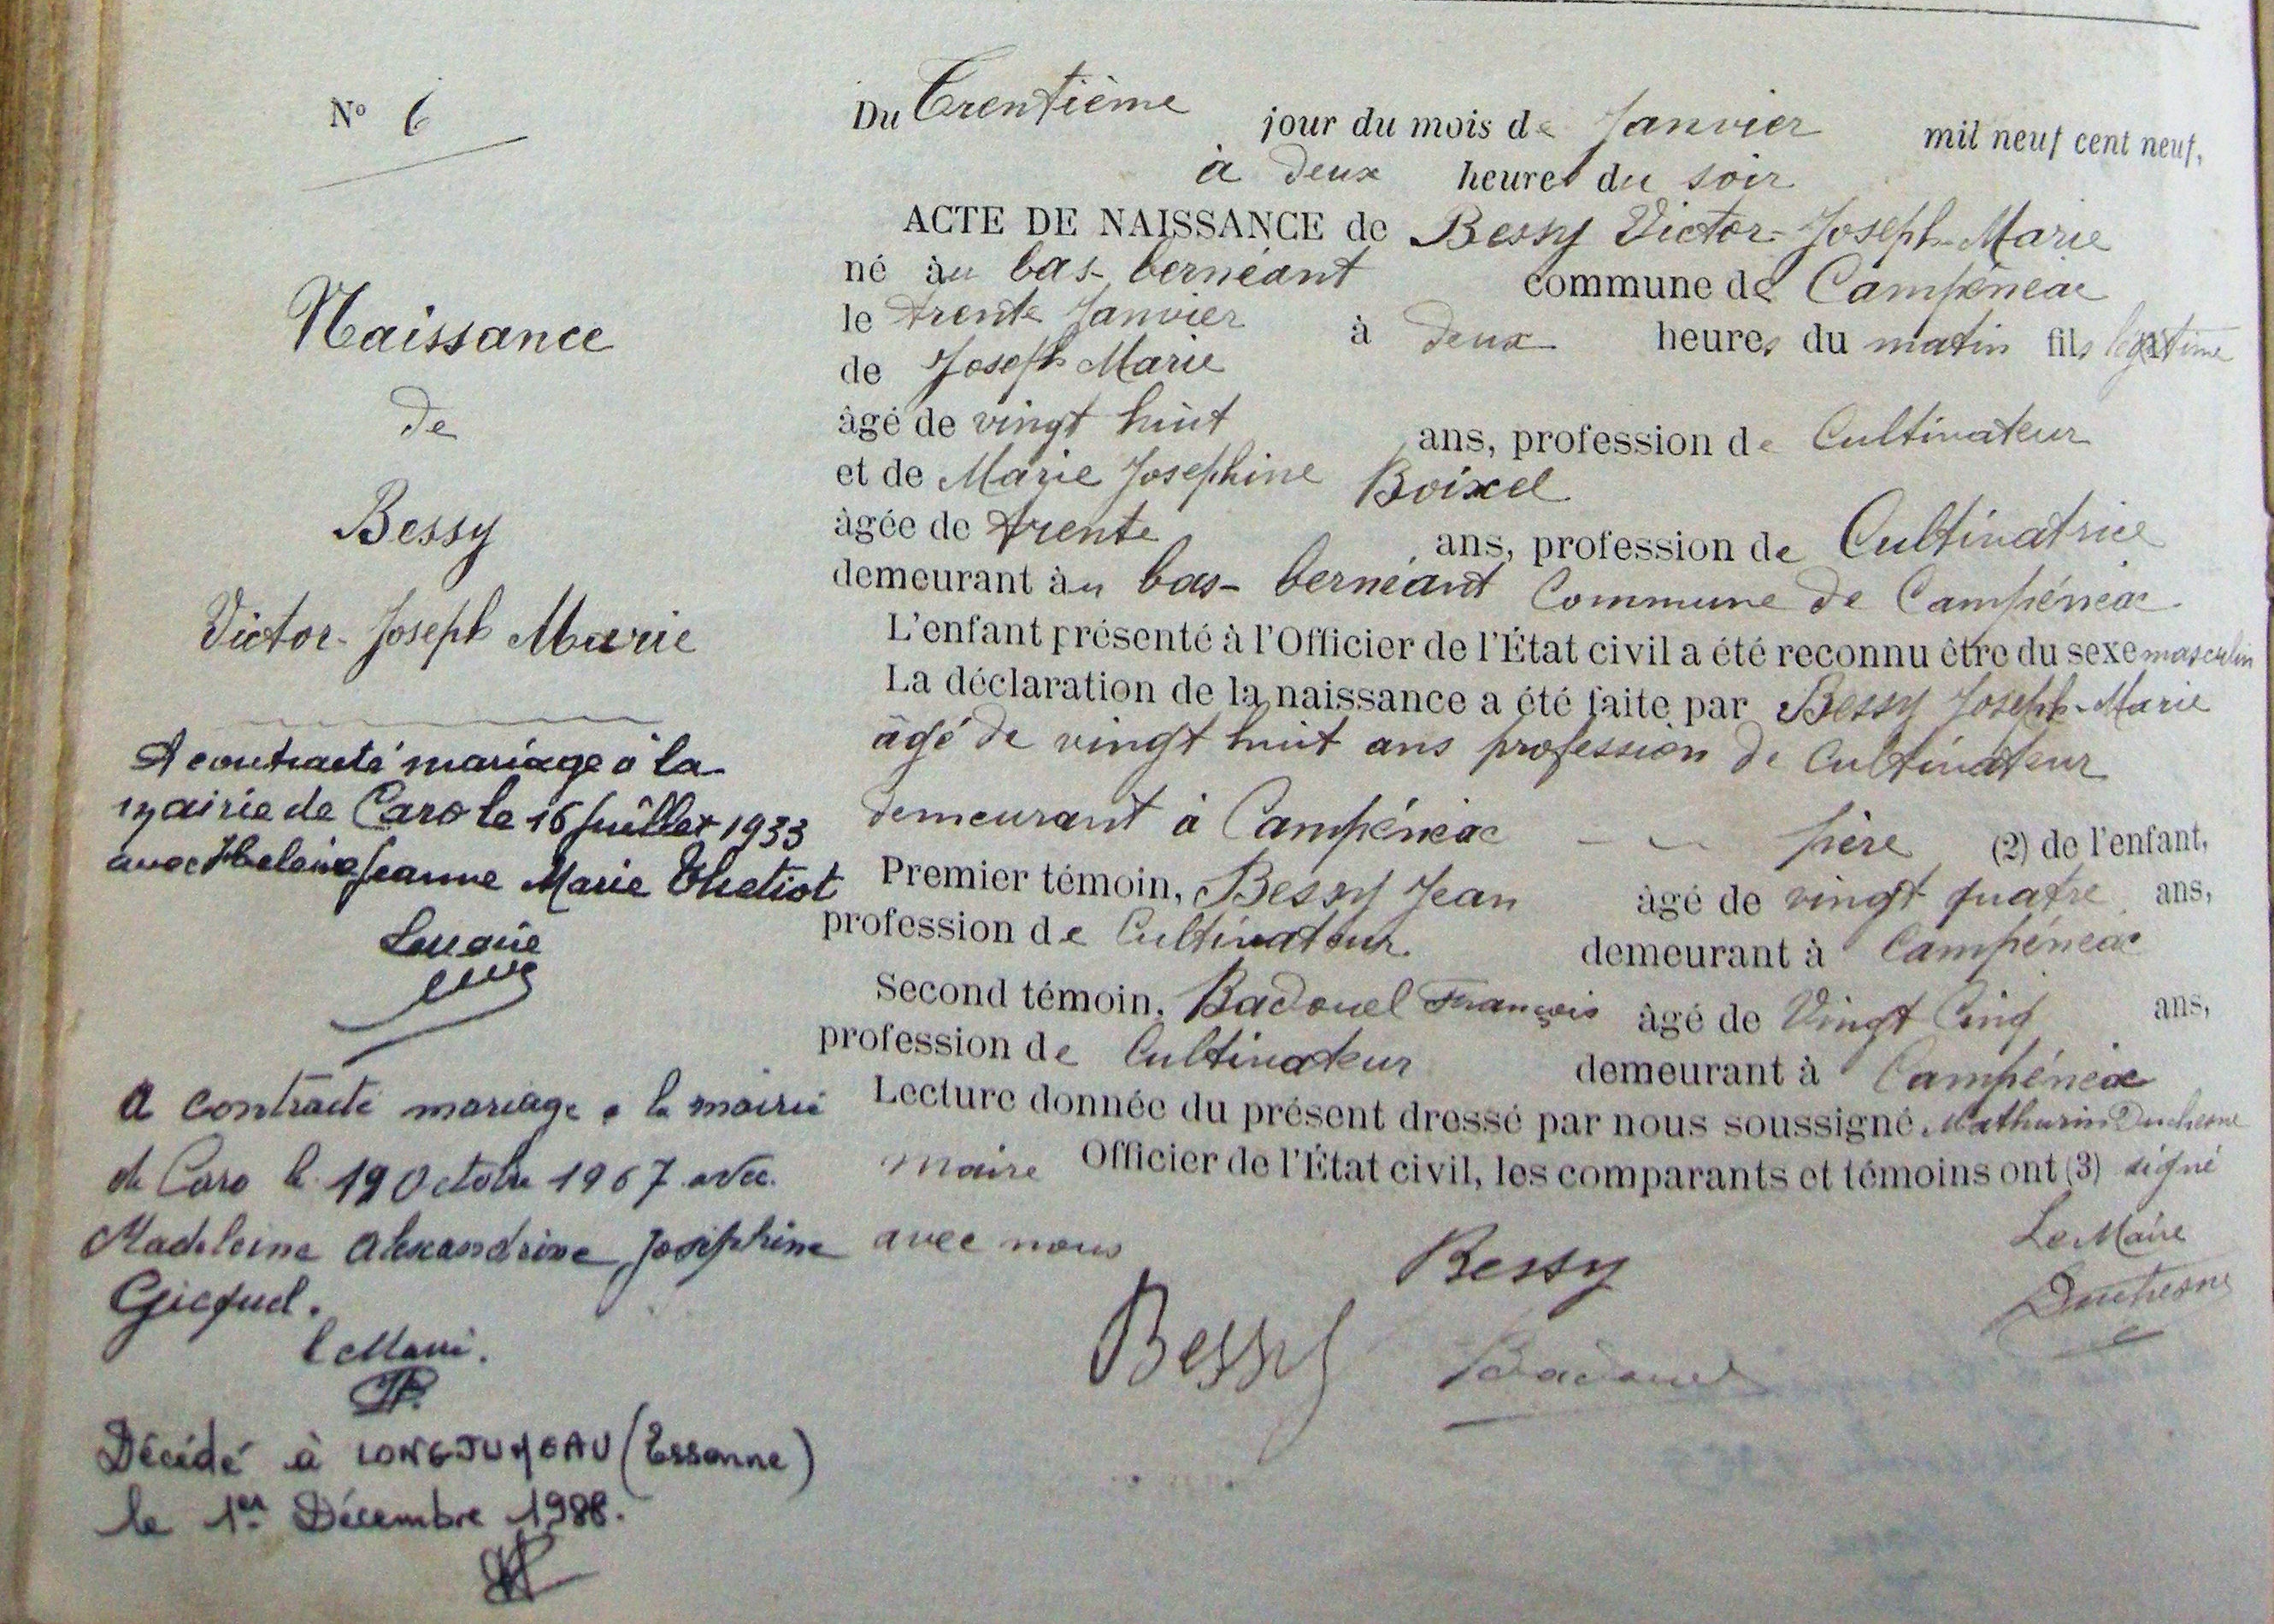 N° 6
Naissance
de
Bessy
Victor-Joseph Marie
A contracté mariage à la
mairie de Caro le 16 Juillet 1933
avec Helene Jeanne Marie Thetiot
Le maire
A contracté mariage à la mairie
de Caro le 19 Octobre 1967 avec
Madeleine Alexandrine Joséphine
Gicquel.
le Maire.
Décédé à LONGJUMEAU (Essonne)
le 1er Décembre 1988.
Du Trentième jour du mois de Janvier mil neuf cent neuf,
à deux heures du soir
ACTE DE NAISSANCE de Bessy Victor-Joseph-Marie
né au bas-bernéant commune de Campénéac
le trente Janvier à deux heures du matin fils légitime
de Joseph Marie
âgé de vingt huit ans, profession de Cultivateur
et de Marie Josephine Boixel
âgée de trente ans, profession de Cultivatrice
demeurant au bas-bernéant Commune de Campénéac
L'enfant présenté à l'Officier de l'État civil a été reconnu être du sexe masculin
La déclaration de la naissance a été faite par Bessy Joseph-Marie
âgé de vingt huit ans profession de Cultivateur
demeurant à Campénéac père (2) de l'enfant,
Premier témoin, Bessy Jean âgé de vingt quatre ans,
profession de Cultivateur demeurant à Campénéac
Second témoin, Badouel François âgé de Vingt Cinq ans,
profession de Cultivateur demeurant à Campénéac
Lecture donnée du présent dressé par nous soussigné Mathurin Duchesne
maire Officier de l'État civil, les comparants et témoins ont (3) signé
avec nous
Le Maire
Bessy
Duchesne
Bessy
Badouel